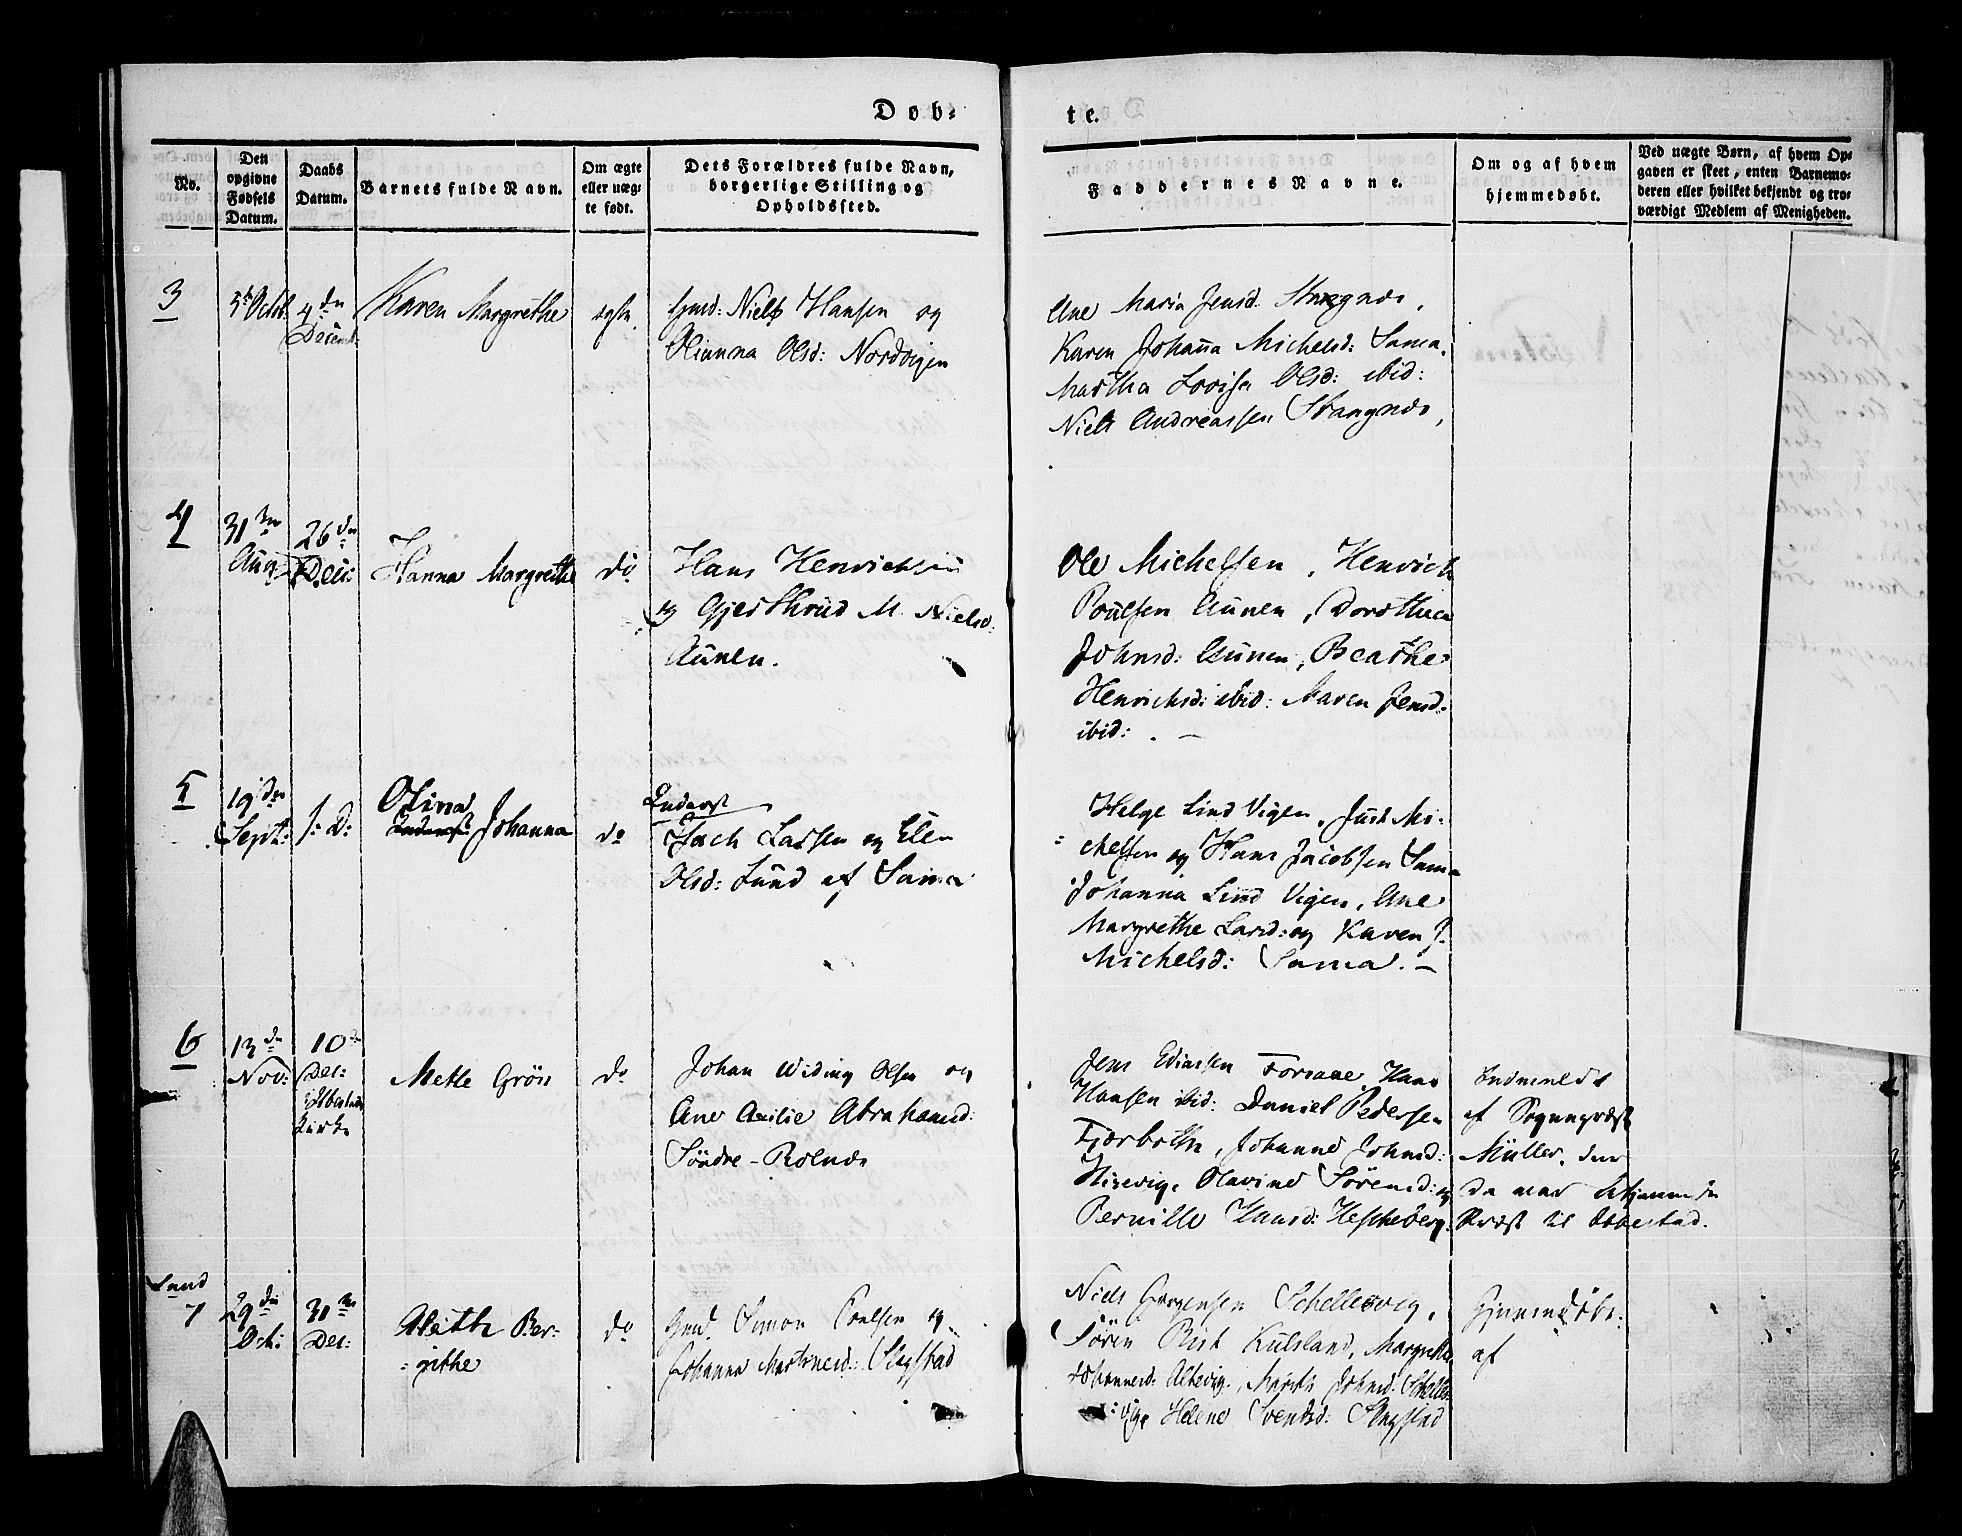 Døb-
te.
No.
Den opgivne Fødsels Datum.
Daabs Datum.
Barnets fulde Navn.
Om ægte eller uægte født.
Dets Forældres fulde Navn, borgerlige Stilling og Opholdssted.
Faddernes Navne.
Om og af hvem hjemmedøbt.
Ved uægte Børn, af hvem Opgaven er skeet, enten Barnemoderen eller hvilket bekjendt og troværdigt Medlem af Menigheden.
3
Octbr.
4 dn
Decemb.
Karen Margrethe
Niels Hansen og
Olianna Olsd: Nordvigen
Ane Maria Jensd. Strangnæs,
Karen Johanna Michelsd: Sama,
Martha Lovise Olsd: ibid:
Niels Andreassen Strangnæs,
4
31 te
Aug
26 dn
Dec:
Hanna Margrethe
do
Hans Henrichsen
og Gjerthrud M. Nielsd:
Aunen.
Ole Michelsen, Henrich
Poulsen Aunen, Dorothea
Johnsd: Aunen, Beathe
Henrichsd: ibid: Maren Jensd:
ibid: . -
5
19 dn
Sept:
s: D:
Olina
Johanna
do
Zach Larsen og Elen
Olsd: Lund af Sama
Helge Lind Vigen, Just Mi-
chelsen og Hans Jacobsen Sama
Johanna Lind Vigen, Ane
Margrethe Larsd: og Karen J.
Michelsd: Sama. -
6
13 dn
Nov:
10 dn
Dec:
Ibbestad
Kirke
Mette Gröss
do
Johan Widing Olsen og
Ane Abrahamsd:
Söndre-Rolnæs
Jens Forsaae, Hans
Hansen ibid: Daniel Pedersen
Fjærbotn, Johanna Johnsd:
Olavina Sörensd: og
Pernille Hansd:
Indmeldt
af Sognepræst
Müller, som
Præst til Ibbestad.
Sand
7
29 dn
Oct:
31 te
Dec:
Aleth Ber-
-githe
do
Gmd. Simon Poulsen og
Johanna Martinusd: Slagstad
Niels Jörgensen Schellesvig,
Sören Kulsland, Margrethe
Johannesd: Altevig, Marth Johnsd: Schelles-
vig Helene Svendsd: Slagstad
Hjemmedøbt:
af